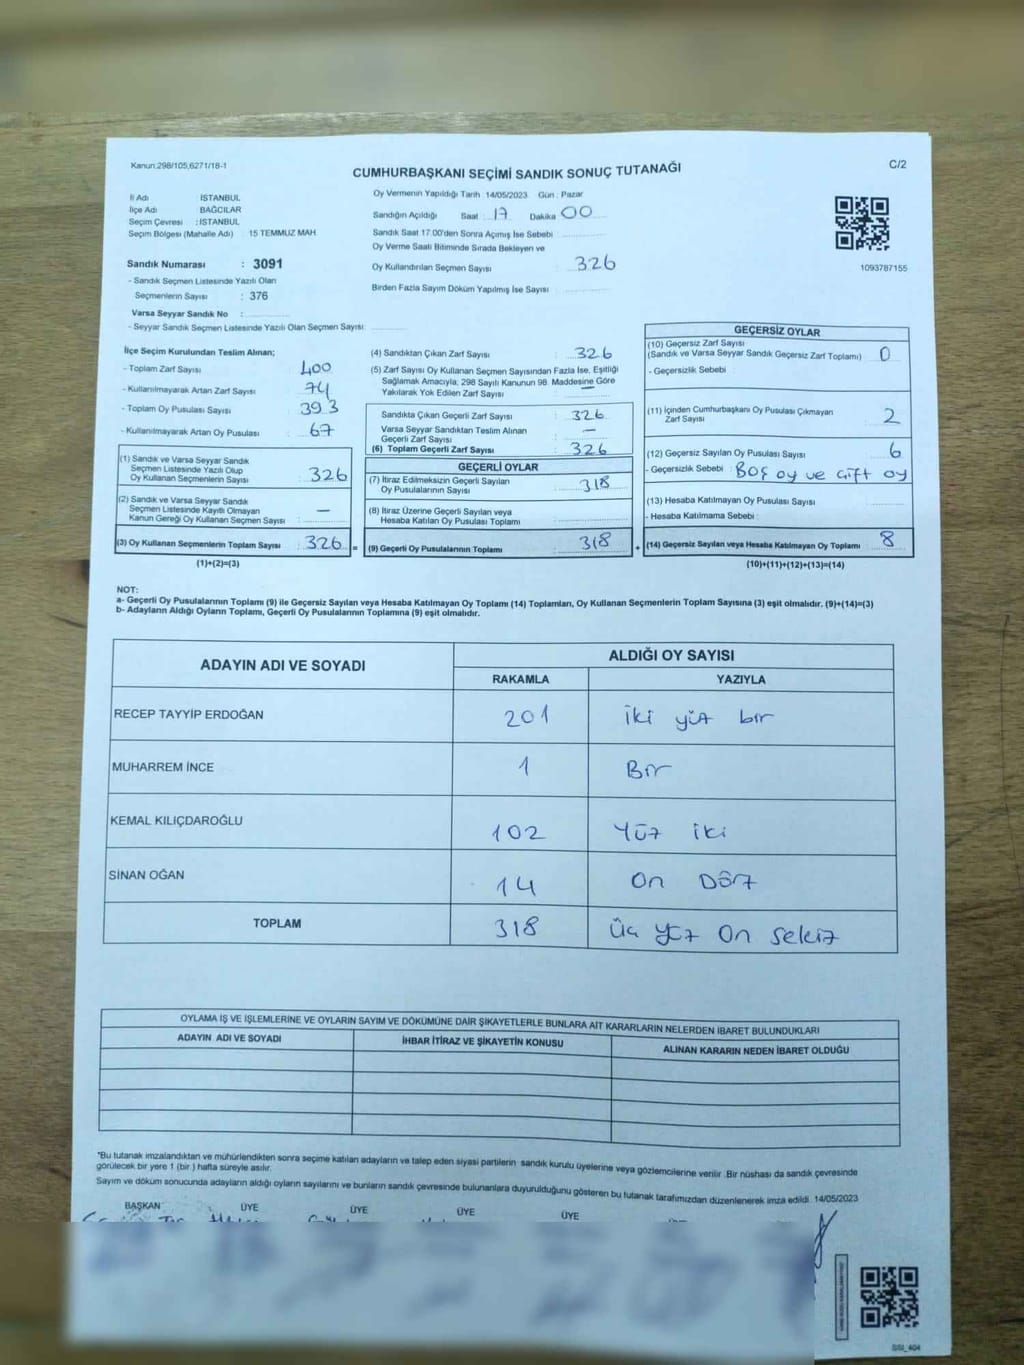 Kanun:298/105,6271/18-1
C/2
CUMHURBAŞKANI SEÇİMİ SANDIK SONUÇ TUTANAĞI
İl Adı İSTANBUL
İlçe Adı BAĞCILAR
Seçim Çevresi : İSTANBUL
Seçim Bölgesi (Mahalle Adı) 15 TEMMUZ MAH
Sandık Numarası : 3091
- Sandık Seçmen Listesinde Yazılı Olan
Seçmenlerin Sayısı : 376
Varsa Seyyar Sandık No :
- Seyyar Sandık Seçmen Listesinde Yazılı Olan Seçmen Sayısı:
Oy Vermenin Yapıldığı Tarih 14/05/2023 Gün : Pazar
Sandığın Açıldığı Saat : 17 Dakika 00
Sandık Saat 17.00'den Sonra Açımış İse Sebebi
Oy Verme Saati Bitiminde Sırada Bekleyen ve
Oy Kullandırılan Seçmen Sayısı : 326
Birden Fazla Sayım Döküm Yapılmış İse Sayısı :
1093787155
İlçe Seçim Kurulundan Teslim Alınan;
- Toplam Zarf Sayısı : 400
- Kullanılmayarak Artan Zarf Sayısı : 74
- Toplam Oy Pusulası Sayısı : 393
- Kullanılmayarak Artan Oy Pusulası : 67
(1) Sandık ve Varsa Seyyar Sandık
Seçmen Listesinde Yazılı Olup
Oy Kullanan Seçmenlerin Sayısı : 326
(2) Sandık ve Varsa Seyyar Sandık
Seçmen Listesinde Kayıtlı Olmayan
Kanun Gereği Oy Kullanan Seçmen Sayısı : —
(3) Oy Kullanan Seçmenlerin Toplam Sayısı : 326 =
(1)+(2)=(3)
(4) Sandıktan Çıkan Zarf Sayısı : 326
(5) Zarf Sayısı Oy Kullanan Seçmen Sayısından Fazla İse, Eşitliği
Sağlamak Amacıyla; 298 Sayılı Kanunun 98. Maddesine Göre
Yakılarak Yok Edilen Zarf Sayısı : —
Sandıkta Çıkan Geçerli Zarf Sayısı : 326
Varsa Seyyar Sandıktan Teslim Alınan
Geçerli Zarf Sayısı : —
(6) Toplam Geçerli Zarf Sayısı : 326
GEÇERLİ OYLAR
(7) İtiraz Edilmeksizin Geçerli Sayılan
Oy Pusulalarının Sayısı : 318
(8) İtiraz Üzerine Geçerli Sayılan veya
Hesaba Katılan Oy Pusulası Toplamı :
(9) Geçerli Oy Pusulalarının Toplamı : 318 +
GEÇERSİZ OYLAR
(10) Geçersiz Zarf Sayısı
(Sandık ve Varsa Seyyar Sandık Geçersiz Zarf Toplamı) : 0
- Geçersizlik Sebebi
(11) İçinden Cumhurbaşkanı Oy Pusulası Çıkmayan
Zarf Sayısı : 2
(12) Geçersiz Sayılan Oy Pusulası Sayısı : 6
- Geçersizlik Sebebi : Boş oy ve çift oy
(13) Hesaba Katılmayan Oy Pusulası Sayısı :
- Hesaba Katılmama Sebebi :
(14) Geçersiz Sayılan veya Hesaba Katılmayan Oy Toplamı : 8
(10)+(11)+(12)+(13)=(14)
NOT:
a- Geçerli Oy Pusulalarının Toplamı (9) ile Geçersiz Sayılan veya Hesaba Katılmayan Oy Toplamı (14) Toplamları, Oy Kullanan Seçmenlerin Toplam Sayısına (3) eşit olmalıdır. (9)+(14)=(3)
b- Adayların Aldığı Oyların Toplamı, Geçerli Oy Pusulalarının Toplamına (9) eşit olmalıdır.
ADAYIN ADI VE SOYADI ALDIĞI OY SAYISI
RAKAMLA YAZIYLA
RECEP TAYYİP ERDOĞAN 201 iki yüz bir
MUHARREM İNCE 1 Bir
KEMAL KILIÇDAROĞLU 102 Yüz iki
SİNAN OĞAN 14 On Dört
TOPLAM 318 Üç yüz On sekiz
OYLAMA İŞ VE İŞLEMLERİNE VE OYLARIN SAYIM VE DÖKÜMÜNE DAİR ŞİKAYETLERLE BUNLARA AİT KARARLARIN NELERDEN İBARET BULUNDUKLARI
ADAYIN ADI VE SOYADI İHBAR İTİRAZ VE ŞİKAYETİN KONUSU ALINAN KARARIN NEDEN İBARET OLDUĞU
*Bu tutanak imzalandıktan ve mühürlendikten sonra seçime katılan adayların ve talep eden siyasi partilerin sandık kurulu üyelerine veya gözlemcilerine verilir .Bir nüshası da sandık çevresinde
görülecek bir yere 1 (bir ) hafta süreyle asılır.
Sayım ve döküm sonucunda adayların aldığı oyların sayılarını ve bunların sandık çevresinde bulunanlara duyurulduğunu gösteren bu tutanak tarafımızdan düzenlenerek imza edildi. 14/05/2023
BAŞKAN ÜYE ÜYE ÜYE ÜYE
SSI_404